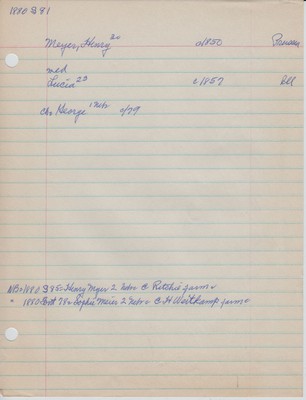 1880 S 81
Meyer, Henry 30 a1850 Prussia
med
Lucia 23 c1857 Ill
ch: George 1 Nebr c/79
NB: 1880 S 85: Henry Myer 2 Nebr C Ritchie farm
" 1880 78: Sophie Meier 2 Nebr C H Weitkamp farm